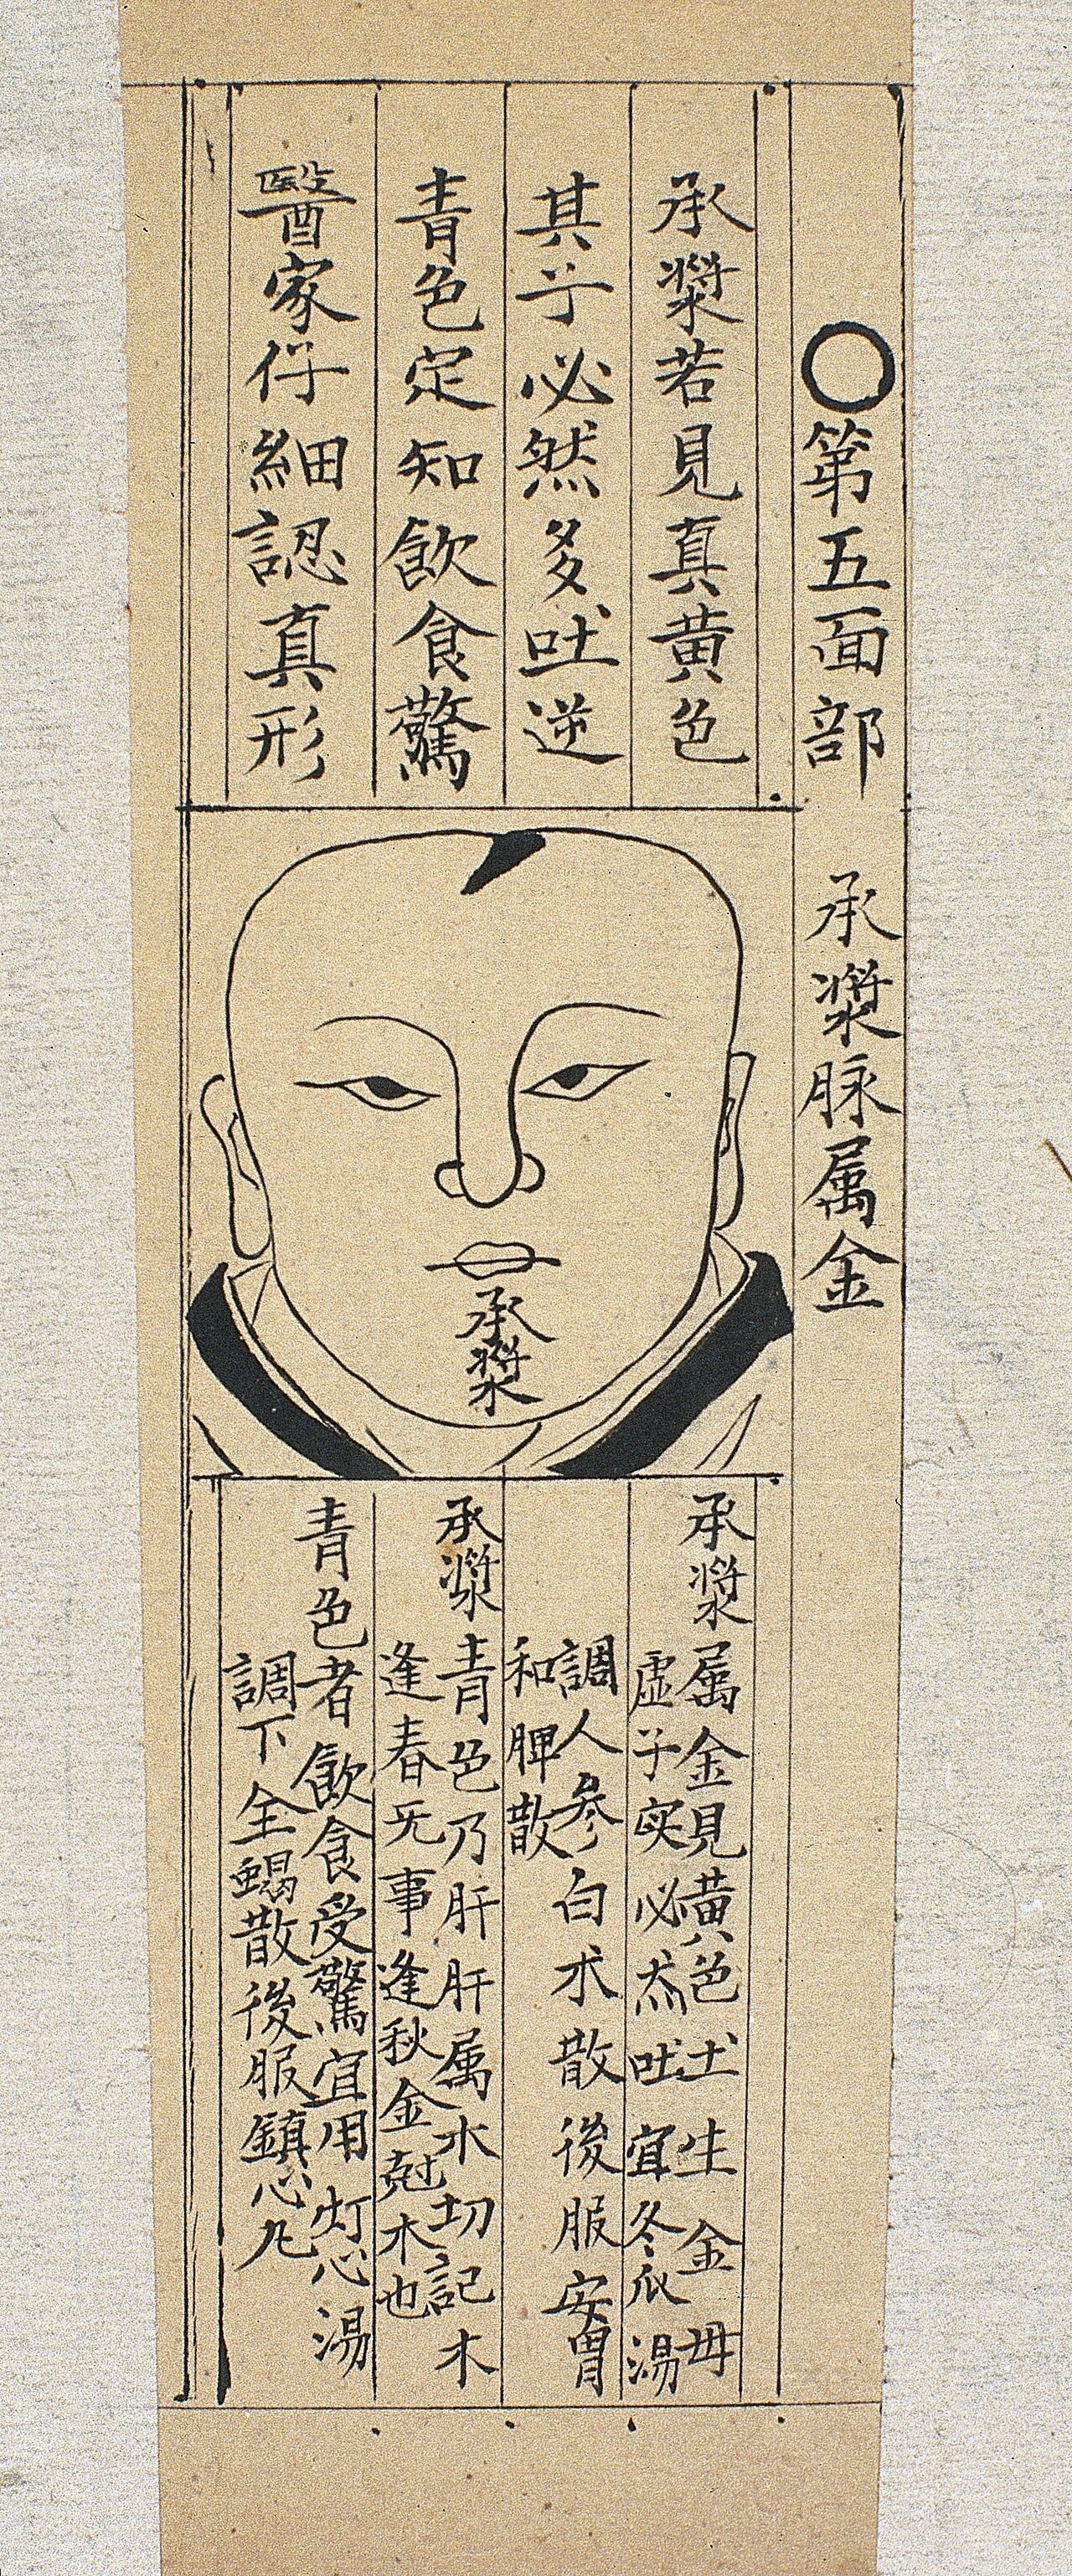 〇第五面部 承漿脉属金
承漿若見真黄色
其子必然多吐逆
青色定知飲食驚
醫家仔細認真形
承漿
承漿属金見黄色土生金母
虚子实必然吐宜冬瓜湯
調人參白朮散後服安胃
和脾散
承漿青色乃肝肝属木切記木
逢春旡事逢秋金尅木也
青色者飲食受驚宜用灯心湯
調下全蝎散後服鎮心丸